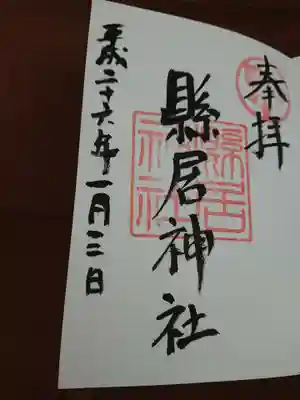 奉拝
縣居神社
縣居神社
平成二十六年一月三日